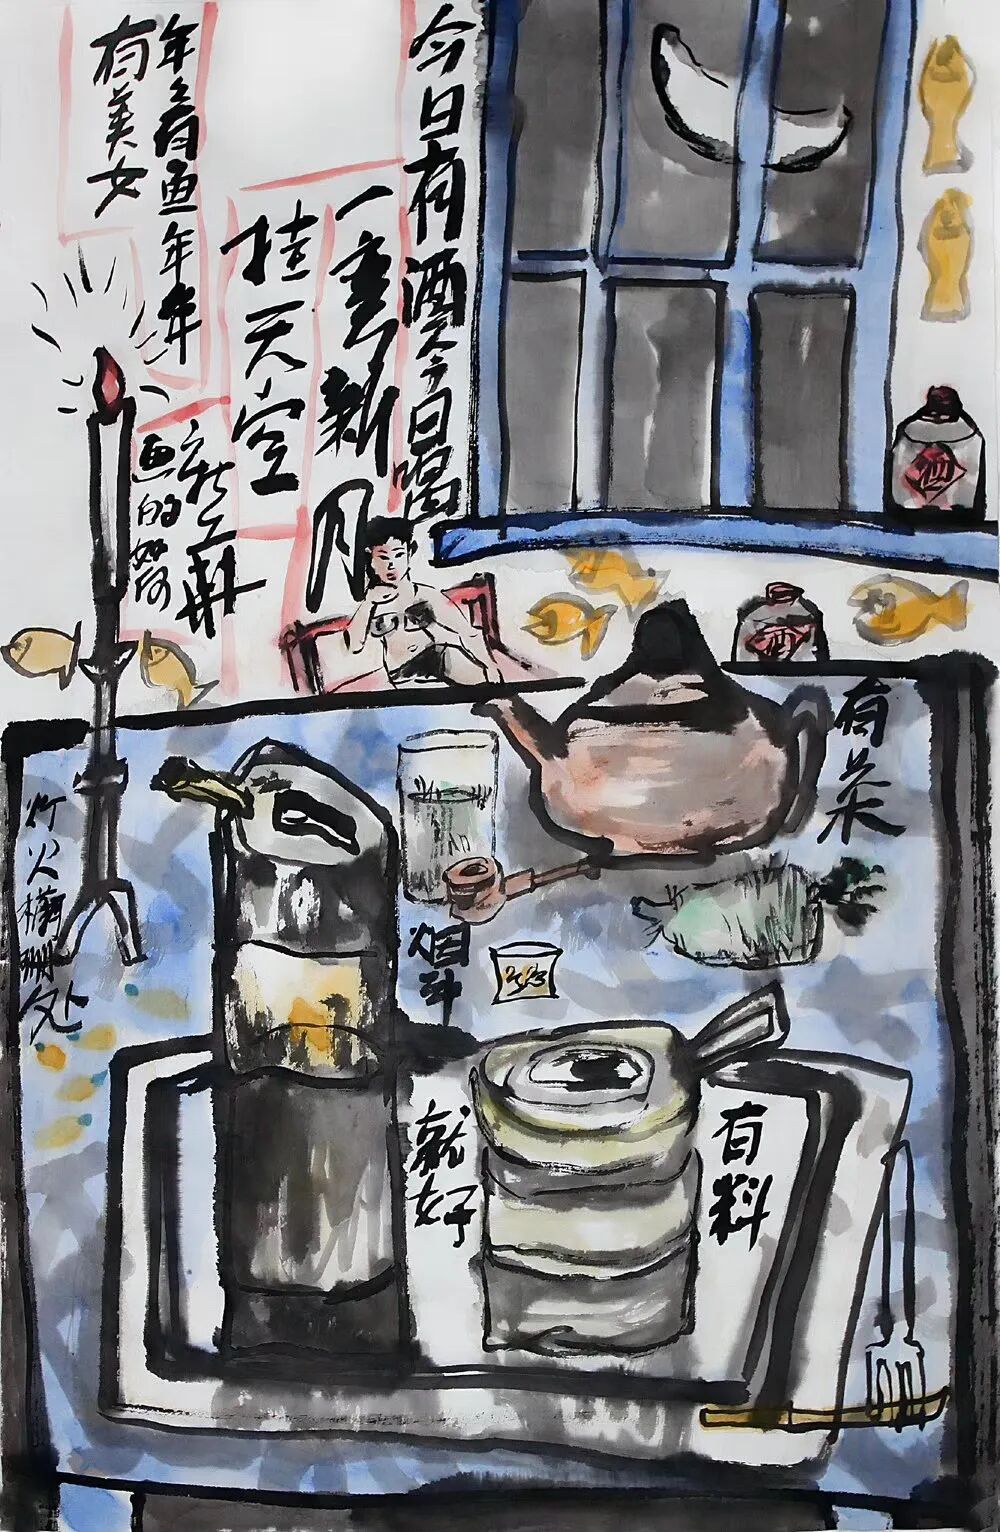 今日有酒今日喝
一弯新月
挂天空
年々有鱼年年
有美女
画的
酒
酒
有茶
灯火欄珊处
烟斗
有料
就好